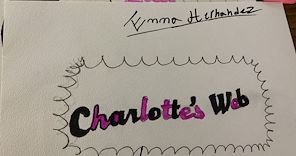 Emma Hernandez
Charlotte's Web